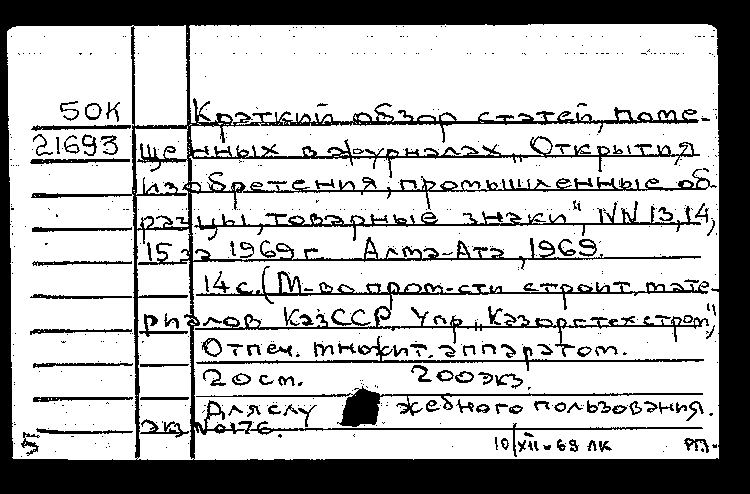 50К Краткий обзор статей, поме-
21693 щенных в журналах „Открытия
изобретения, промышленные об-
разцы, товарные знаки", NN 13, 14,
15 за 1969 г. Алма-Ата, 1969.
14 с. (М-во пром-сти строит. мате-
риалов КазССР. Упр. „Казоргтехстром",
Отпеч. множит. аппаратом.
20 см. 200 экз.
Для служебного пользования.
экз № 176.
10/XII-69 ЛК РП-